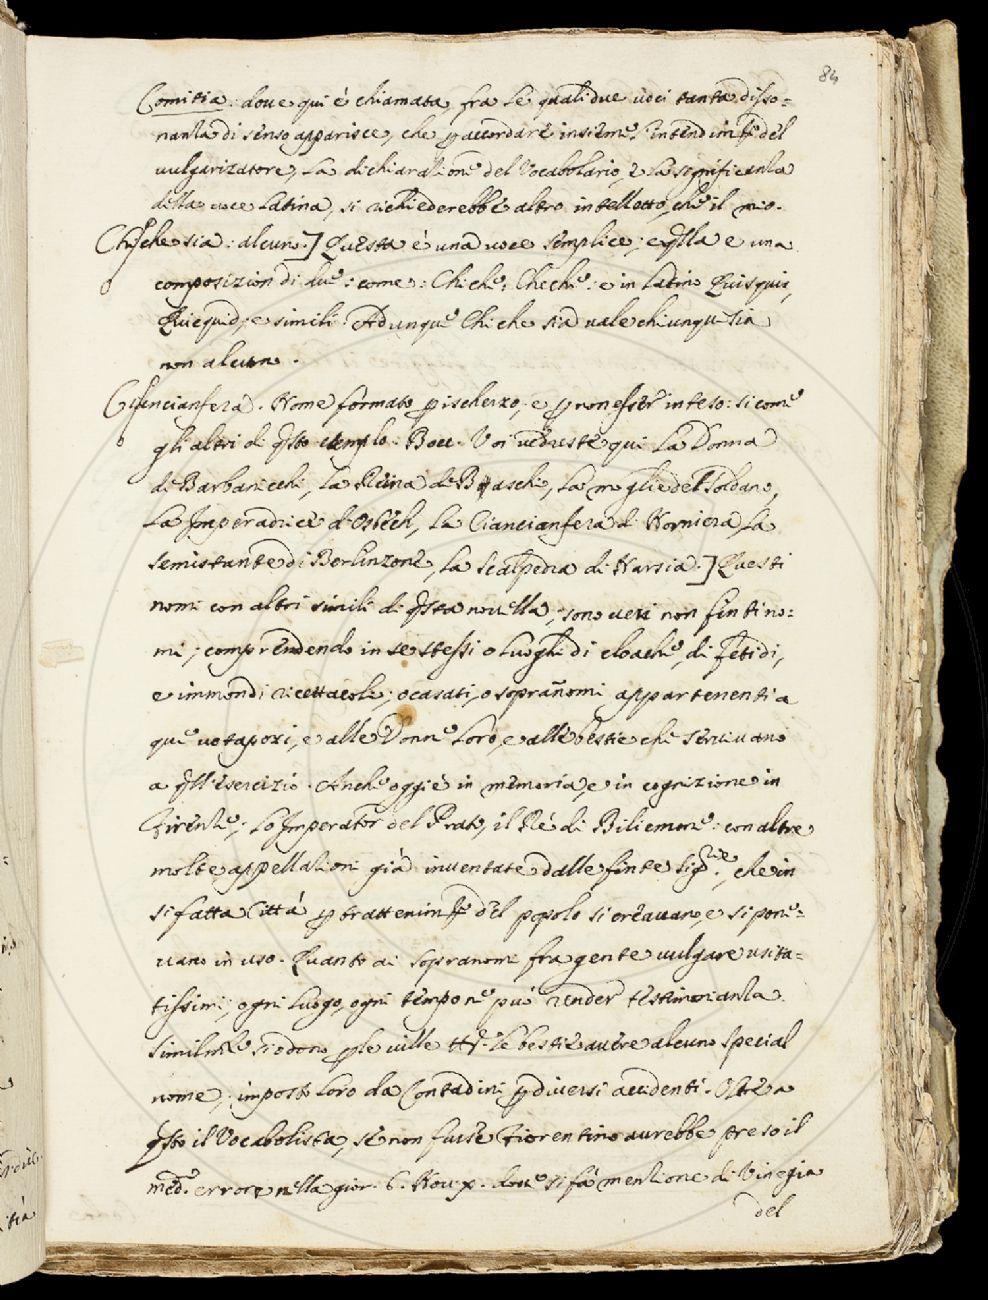 84
Comitia: doue qui è chiamata, fra le quali due uoci tanta disso=
nanza di senso apparisce, che p accordare insieme, l'intendim.to del
uulgarizatore, la dichiarazione del Vocabolario, e la significanza
della uoce latina, si richiederebbe altro intelletto, che il mio.
Chi che sia: alcuno.] Questa è una uoce semplice; e qlla e una
composizion di due: come: Chi che; Che che: e in latino Quisquis,
Quicquid, e simili. Adunque Chi che sia uale chiunque sia
non alcuno.
Ciancianfera. Nome formato p ischerzo, e p non esser inteso: si come
gli altri di qsto esemplo. Bocc. Voi uedreste qui la Donna
di Barbanicchi, la Reina de Baschi, la moglie del Soldano,
la Imperadrice d'Osbech, la Ciancianfera di Norniera, la
semistante di Berlinzone, la Scalpedra di Narsia.] Questi
nomi con altri simili di qsta nouella, sono ueri non finti no=
mi, comprendendo in se stessi o luoghi di cloache, di fetidi,
e immondi ricettacoli; o casati, o sopran̄omi appartenenti a
que uotapozi, e alle Donne loro, e alle bestie che seruiuano
a qll'esercizio. Anche oggi è in memoria, e in cognizione in
Firenze, lo Imperator del Prato, il Re di Biliemme: con altre
molte appellazioni già inuentate dalle finte Sig.rie, che in
si fatta Città p trattenim.to del popolo si creauano, e si pone=
uano in uso. Quanto ai sopranomi fra gente uulgare usita=
tissimi, ogni luogo, ogni tempo ne può render testimonianza.
Similm.te si odono p le uille le bestie auere alcuno special
nome, imposto loro da Contadini p diuersi accidenti. Oltre a
qsto il Vocabolista, se non fusse Fiorentino aurebbe preso il
med.o errore nella gior. 6. Nou. x. doue si fà menzione di Vinegia
del